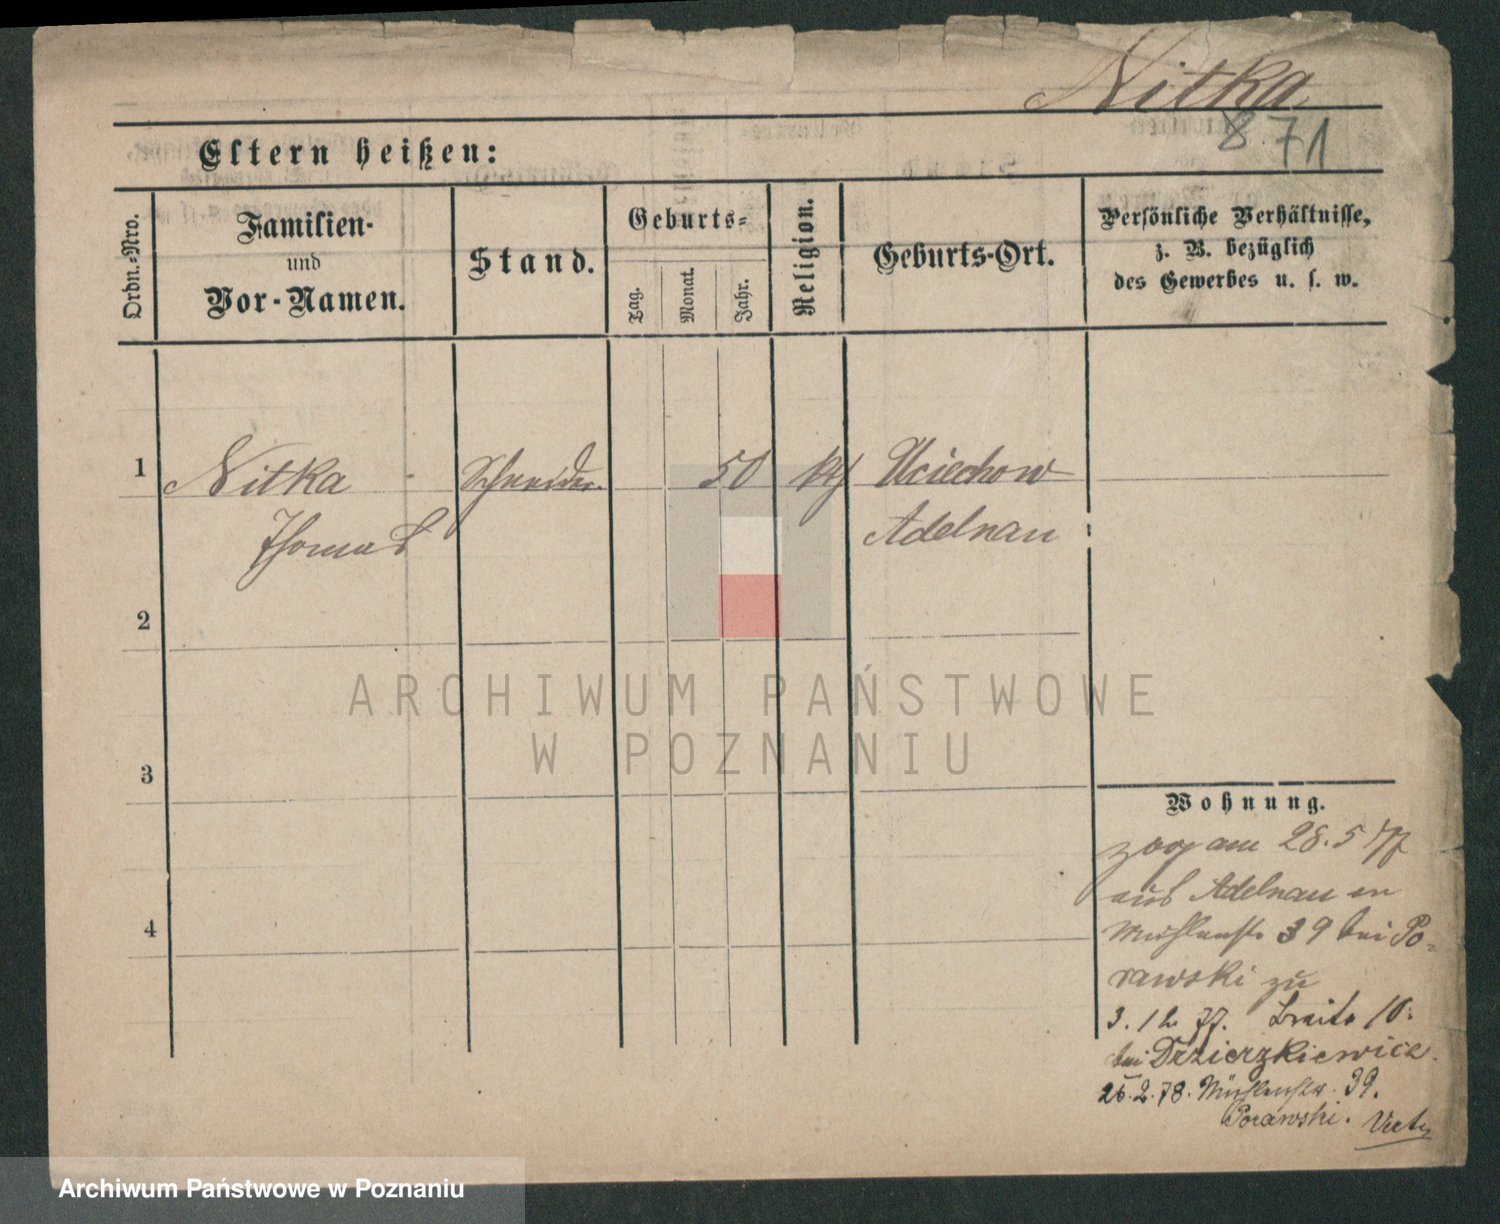 Nitka
8.71
Eltern heißen:
Ordn.-Nro.
Familien-
und
Vor-Namen.
Stand.
Geburts-
Tag.
Monat.
Jahr.
Religion.
Geburts-Ort.
Persönliche Verhältnisse,
z. B. bezüglich
des Gewerbes u. s. w.
1
Nitka
Schneider.
50
kth
Uciechow
Thomas
Adelnau
2
3
4
Wohnung.
zog am 28.5 77
aus Adelnau in
Mühlenstr 39 bei Po-
rawski zu
3. 12 77. Breite 10.
bei Drzierzkiewicz.
26.2.78. Mühlenstr. 39.
Porawski.
ARCHIWUM PAŃSTWOWE
W POZNANIU
Archiwum Państwowe w Poznaniu